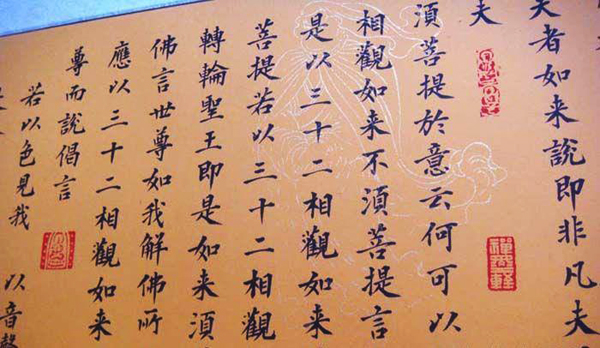 夫者如来說即非凡夫
夫
須菩提於意云何可以
相觀如来不須菩提言
是以三十二相觀如来
菩提若以三十二相觀
轉輪聖王即是如来須
佛言世尊如我解佛所
應以三十二相觀如来
尊而說偈言
若以色見我 以音聲